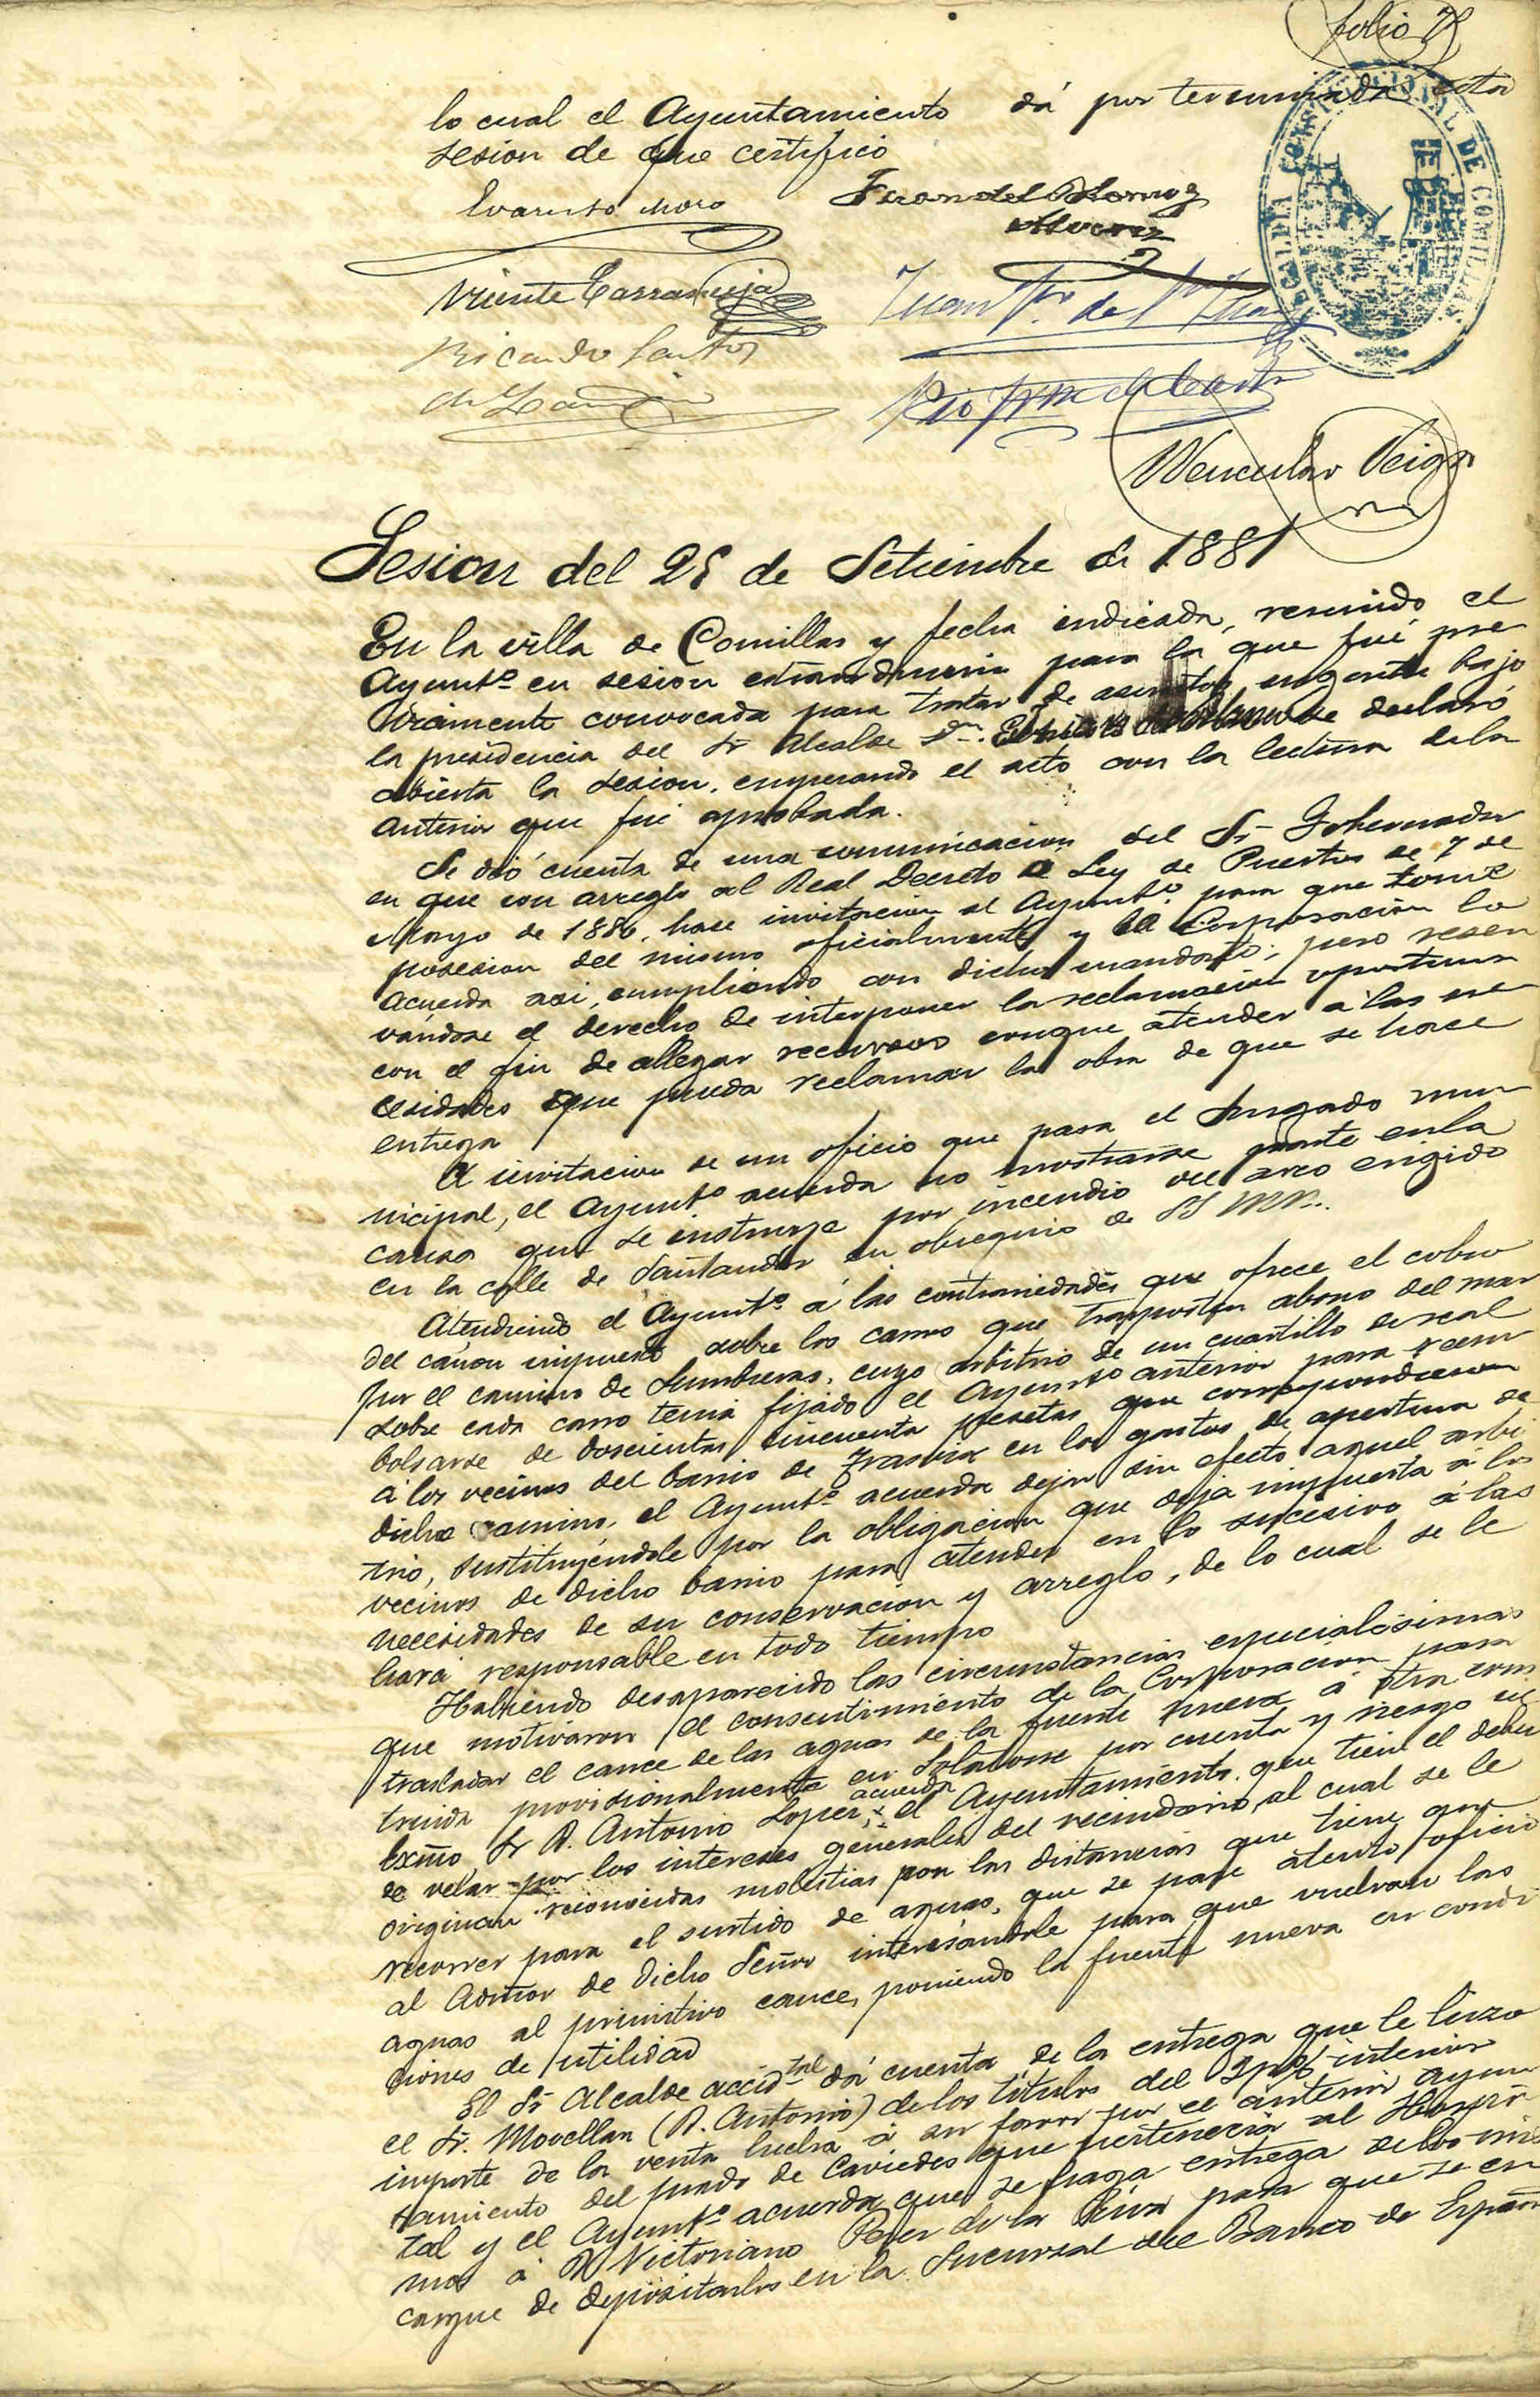 folio 7
lo cual el Ayuntamiento dá por terminada esta
sesion de que certifico
Evaristo Moro
Vicente Carranceja
Ricardo Santos
Wenceslao Veiga
ALCALDIA CONSTITUCIONAL DE COMILLAS
Sesion del 28 de Setiembre de 1881
En la villa de Comillas y fecha indicada, reunido el
Ayuntº en sesion extraordinaria para la que fué pre
viamente convocada para tratar de asuntos urgentes bajo
la presidencia del Sr Alcalde Dn. se declaró
abierta la sesion, empezando el acto con la lectura dela
anterior que fué aprobada.
Se dió cuenta de una comunicacion del Sr Gobernador
en que con arreglo al Real Decreto Ley de Puertos de 7 de
Mayo de 1880, hace invitacion al Ayuntº para que tome
posesion del mismo oficialmente y la Corporacion lo
acuerda asi, cumpliendo con dicho mandato; pero reser
vándose el derecho de interponer la reclamacion oportuna
con el fin de allegar recursos conque atender á las ne
cesidades que pueda reclamar la obra de que se hace
entrega
A invitacion de un oficio que pasa el Juzgado mu
nicipal, el Ayuntº acuerda no mostrarse parte enla
causa que se instruye por incendio del arco erigido
en la calle de Santander en obsequio de SS MM.
Atendiendo el Ayuntº á las contrariedades que ofrece el cobro
del cánon impuesto sobre los carros que trasportan abono del mar
por el camino de Lumbreras, cuyo arbitrio de un cuartillo de real
sobre cada carro tenia fijado el Ayuntº anterior para reem
bolsarse de doscientas cincuenta pesetas que correspondieron
á los vecinos del barrio de Trasvia en los gastos de apertura de
dicho camino, el Ayuntº acuerda dejar sin efecto aquel arbi
trio, sustituyéndole por la obligacion que deja impuesta á los
vecinos de dicho barrio para atender en lo sucesivo á las
necesidades de su conservacion y arreglo, de lo cual se le
hará responsable en todo tiempo
Habiendo desaparecido las circunstancias especialisimas
que motivaron el consentimiento de la Corporacion para
trasladar el cauce de las aguas de la fuente nueva á otra cons
truida provisionalmente en por cuenta y riesgo del
Excmo Sr D. Antonio Lopez, acuerda el Ayuntamiento, que tiene el deber
de velar por los intereses generales del vecindario, al cual se le
originan reconocidas molestias por las distancias que tiene que
recorrer para el surtido de aguas, que se pase atento oficio
al Admor de dicho Señor interesándole para que vuelvan las
aguas al primitivo cauce, poniendo la fuente nueva en condi
ciones de utilidad
El Sr Alcalde accidtal dá cuenta de la entrega que le hizo
el Sr. Movellan (D. Antonio) de los titulos del 3 p% interior
importe de la venta hecha á su favor por el anterior Ayun
tamiento del prado de Caviedes que pertenecia al Hospi
tal y el Ayuntº acuerda que se haga entrega delos mis
mos á D Victoriano Perez de la Riva para que se en
cargue de depositarlos en la Sucursal del Banco de España